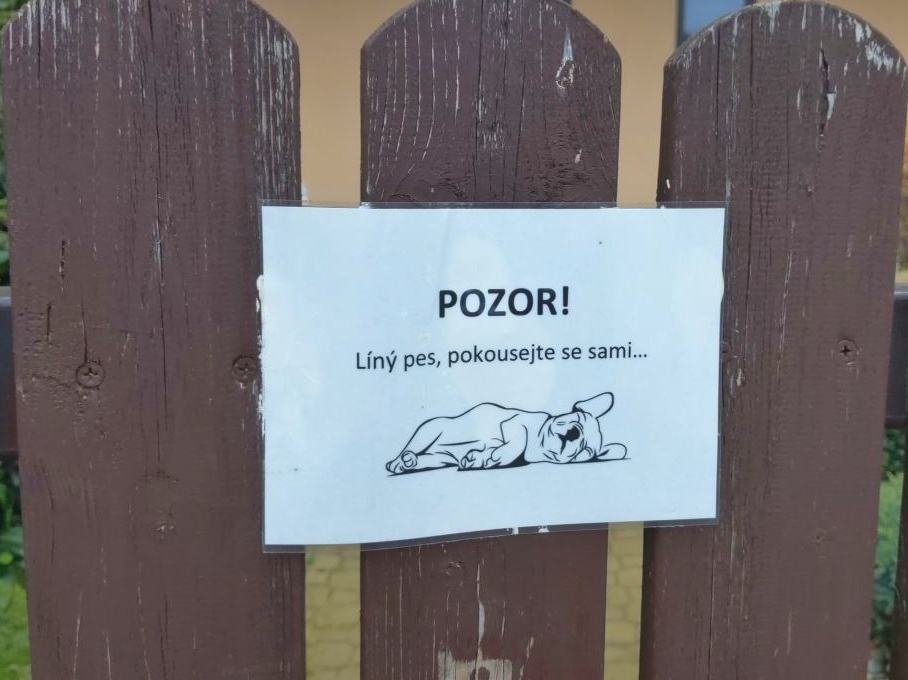 POZOR!
Líný pes, pokousejte se sami...